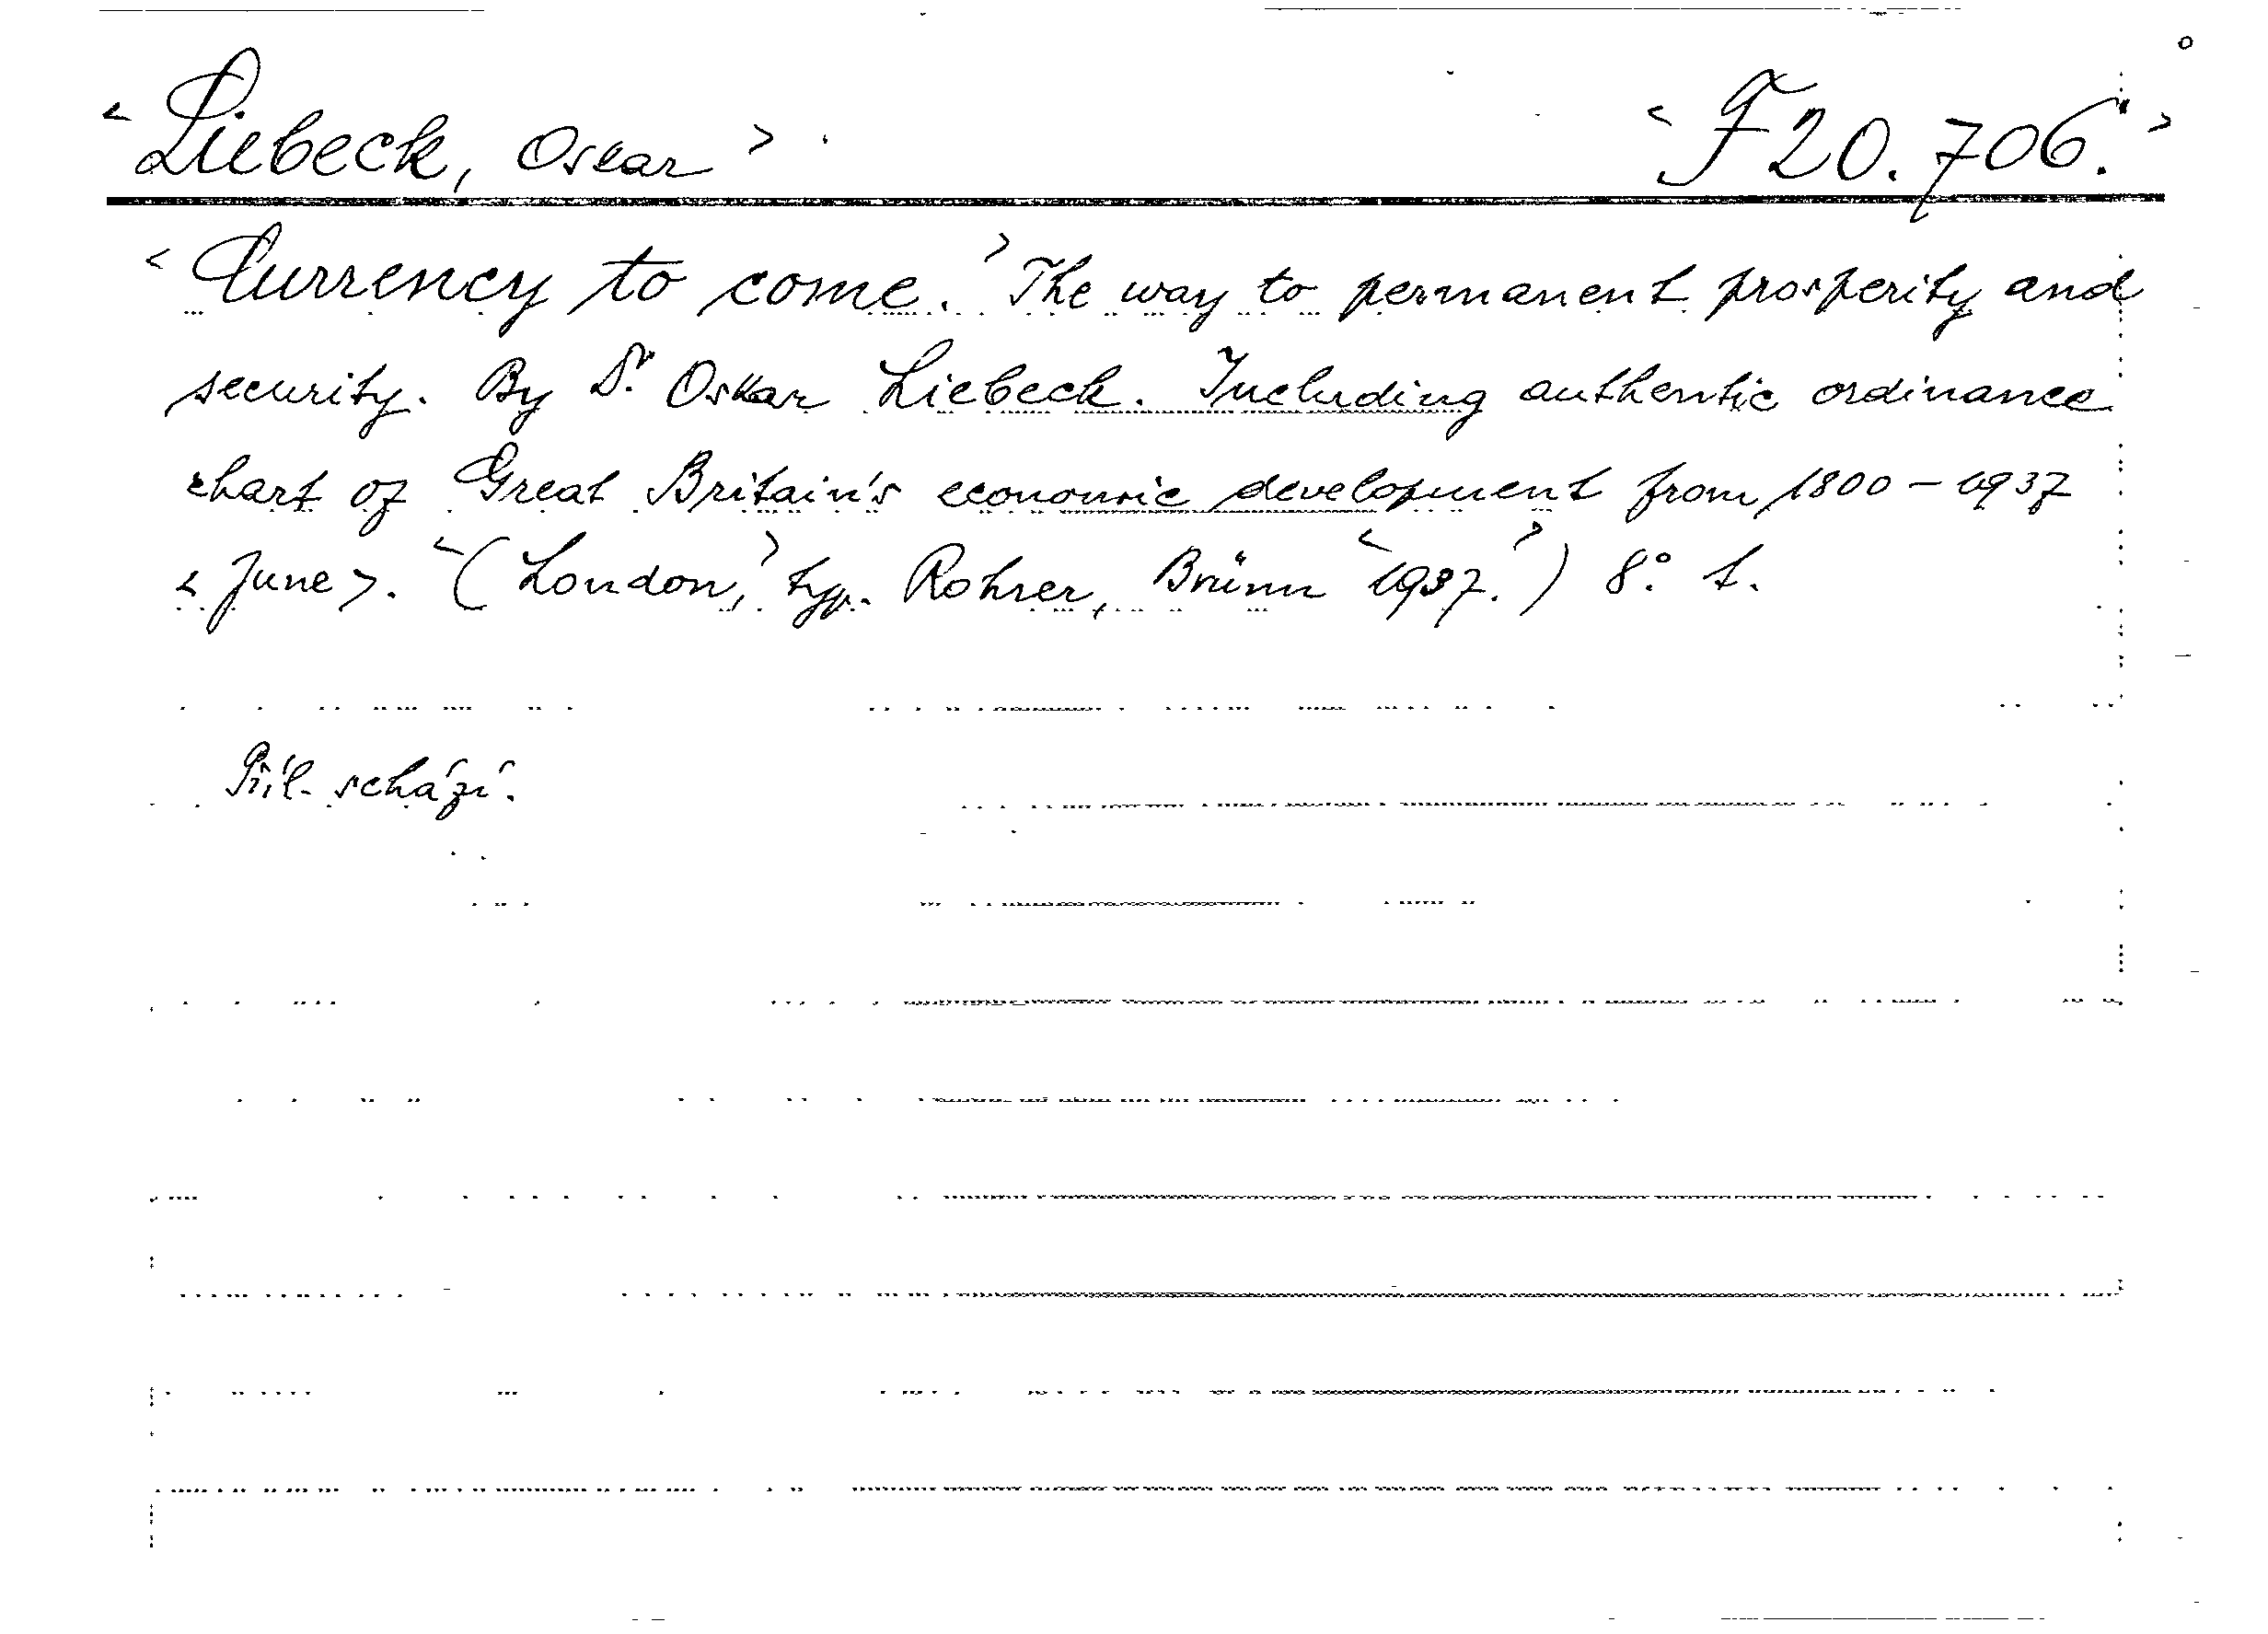 <Liebeck, Oskar> <F 20.706.>
<Currency to come.> The way to permanent prosperity and
security. By Dr. Oskar Liebeck. Including authentic ordinance
chart of Great Britain's economic development from 1800 - 1937
<June>. <(London,> typ. Rohrer, Brünn <1937.>) 8° t.
Příl. schází.